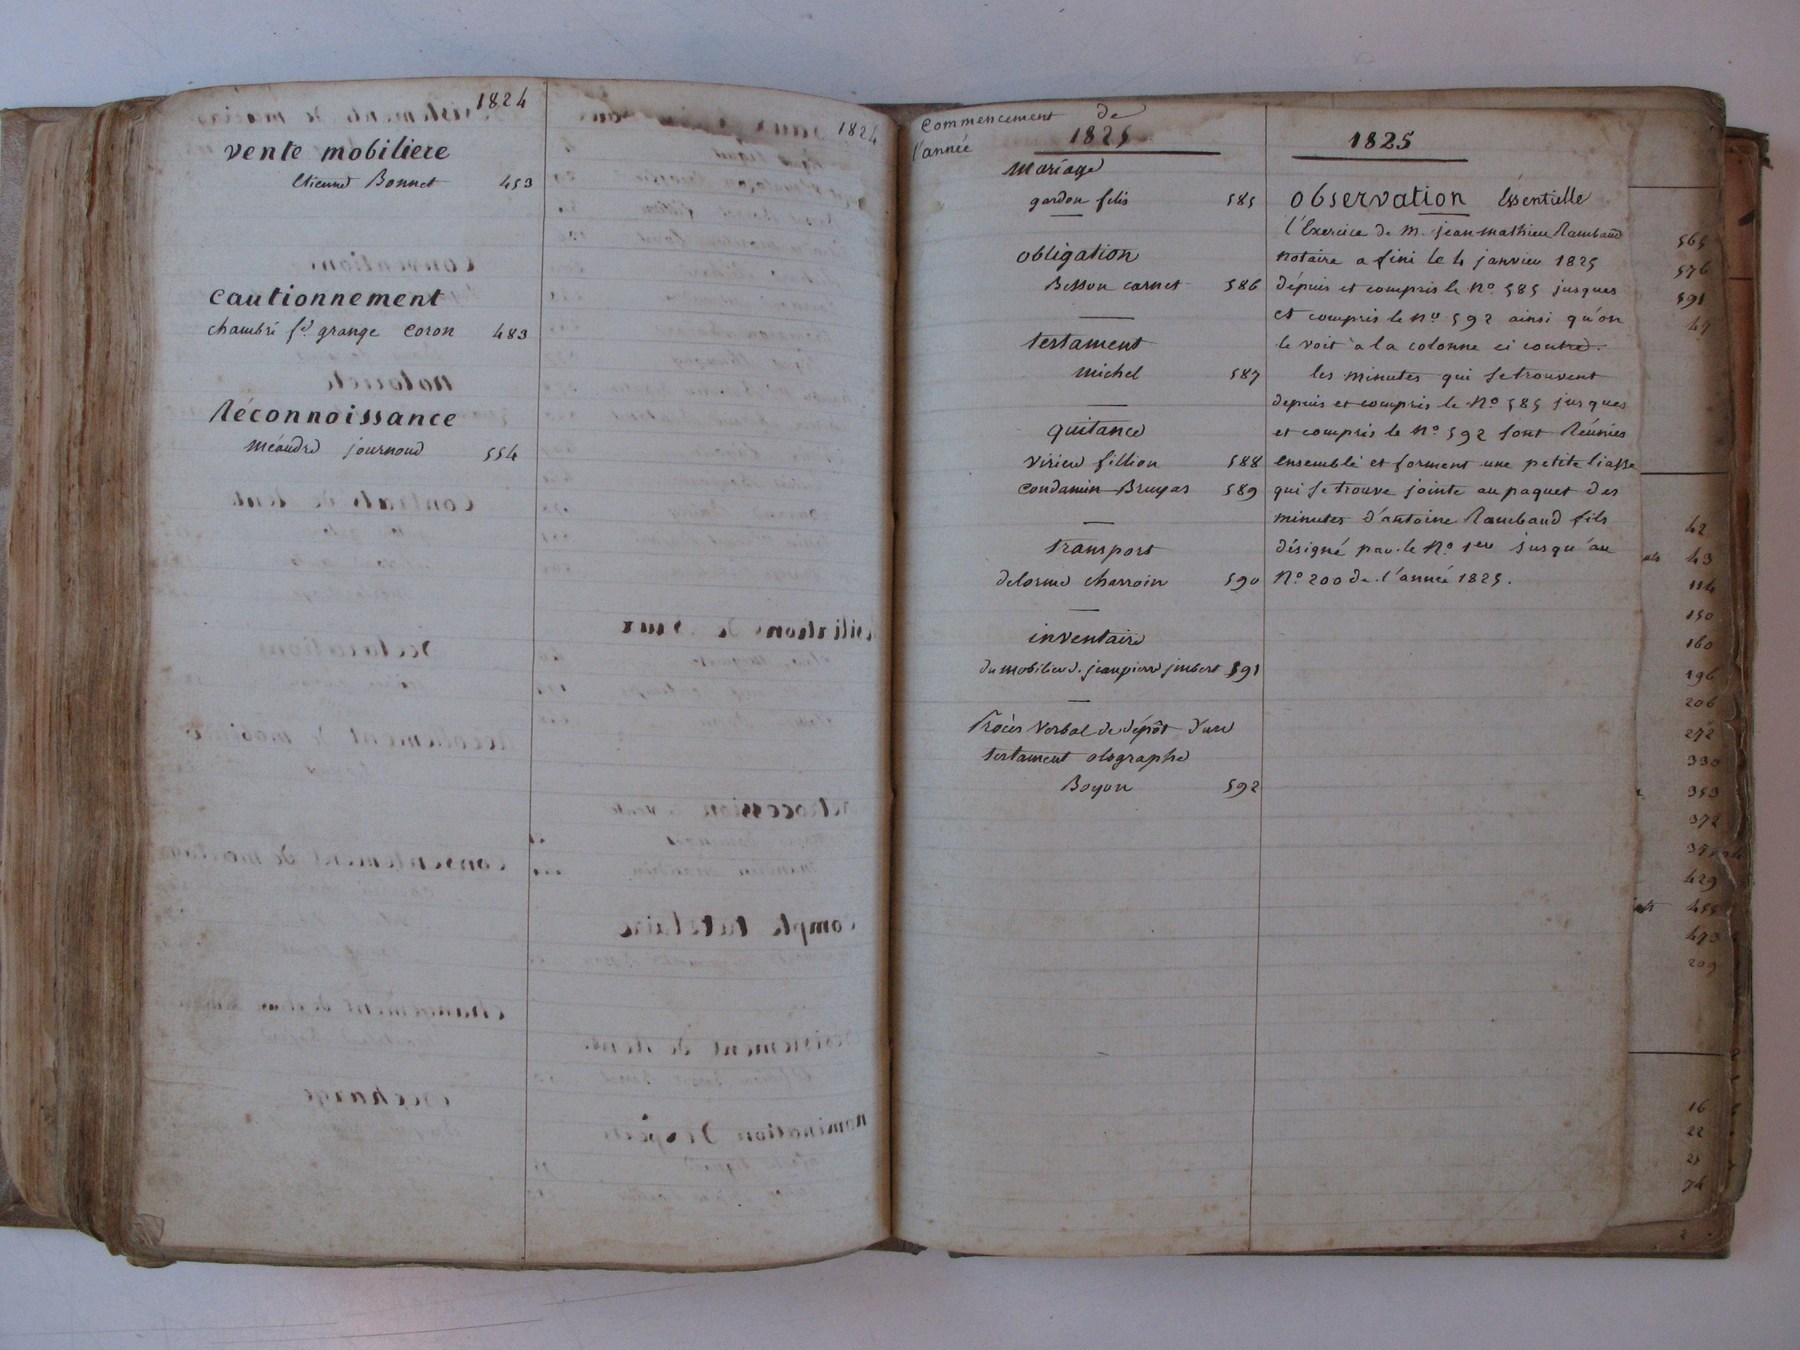 1824
vente mobiliere
Etienne Bonnet 453
cautionnement
chambri fs grange Coron 483
Réconnoissance
méandre journoud 554
1824
Commencement de
l'année 1825
Mariage
gardon félix 585
obligation
Besson carnet 586
testament
Michel 587
quitance
Virieu fillion 588
Condamin Bruyas 589
transport
delorme charroin 590
inventaire
du mobilier d. jeanpierre jmbert 591
Procès Verbal de dépôt d'un
testament olographe
Boyon 592
1825
observation Essentielle
l'Exercice de M. jean mathieu Rambaud
notaire a fini le 4 janvier 1825
dépuis et compris le No 585 jusques
et compris le No 592 ainsi qu'on
le voit à la colonne ci contre.
les minutes qui se trouvent
depuis et compris le No 585 jusques
et compris le No 592 sont Réunies
ensemble et forment une petite liasse
qui se trouve jointe au paquet des
minutes d'antoine Rambaud fils
désigné par le No 1er jusqu'au
No 200 de l'année 1825.
565
576
591
47
42
43
114
150
160
196
206
272
330
353
372
429
455
473
209
16
22
74